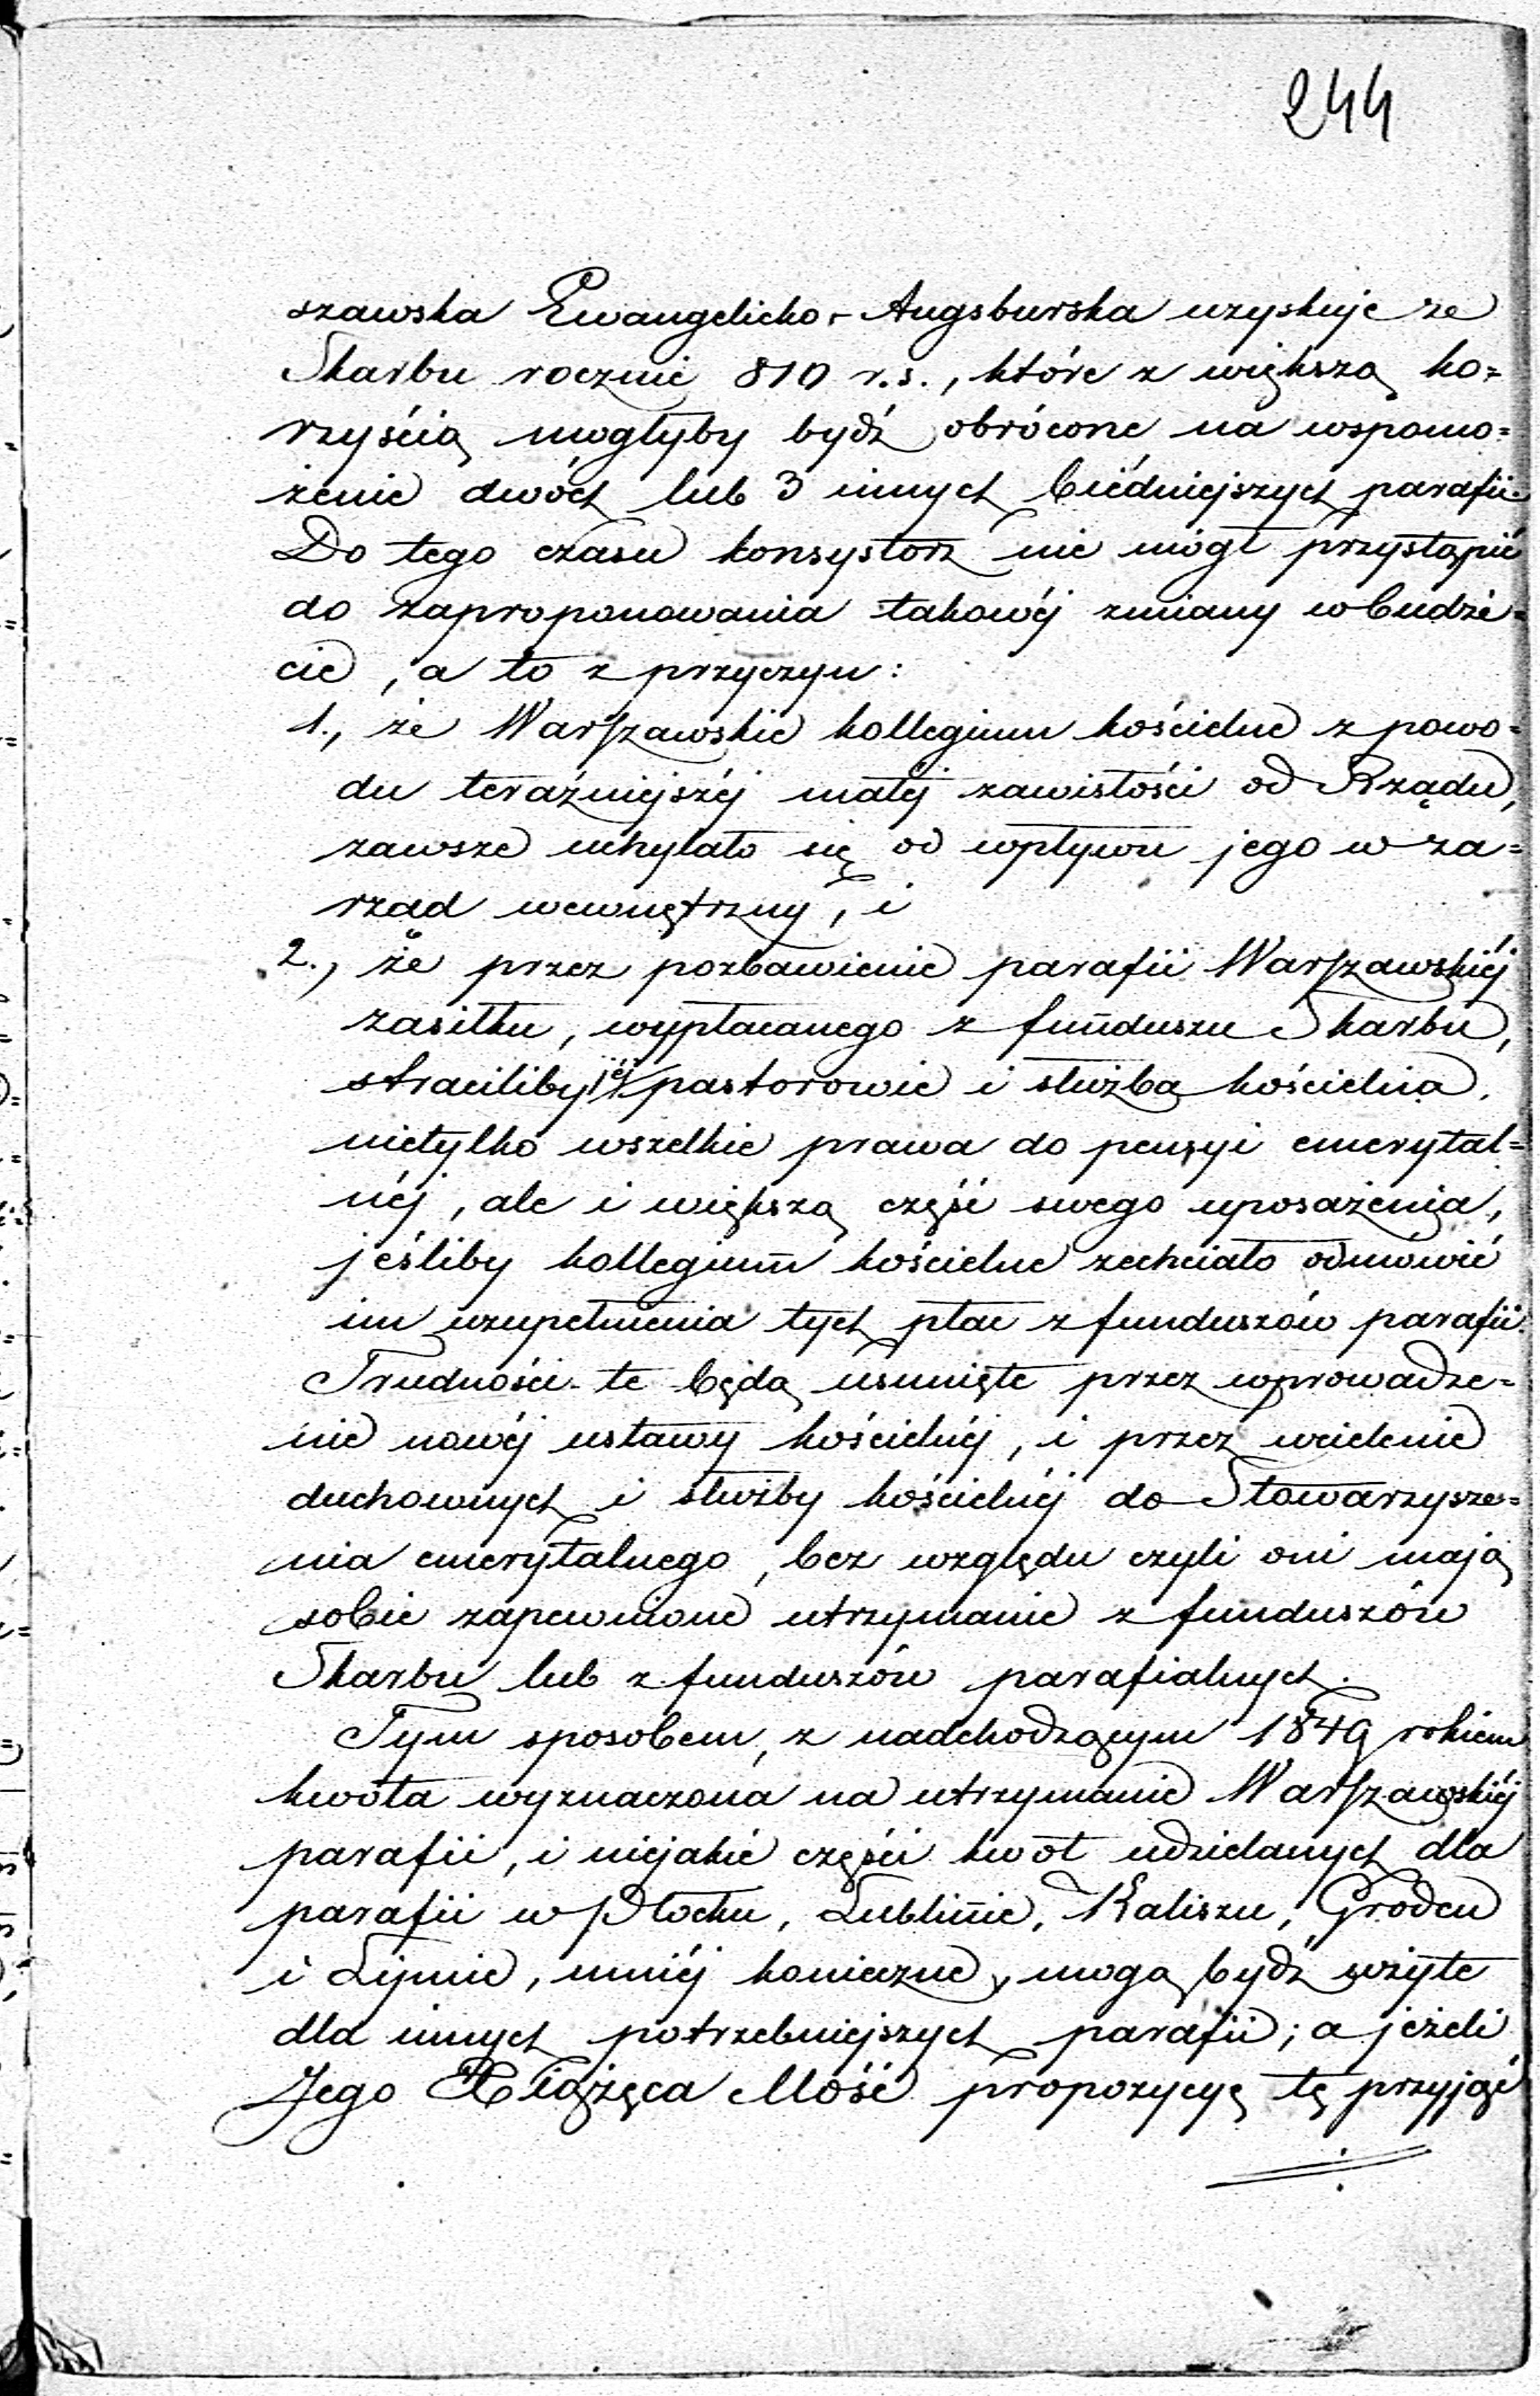 244
szawska Ewangelicko-Augsburska uzyskuje ze
Skarbu rocznie 810 r.s., które z większą ko=
rzyścią mogłyby bydź obrócone na wspomo=
żenie dwóch lub 3 innych biédniejszych parafii.
Do tego czasu konsystorz nie mógł przystąpić
do zaproponowania takowéj zmiany w budże=
cie, a to z przyczyn:
1., że Warszawskie kollegium kościelne z powo=
du teraźniejszéj małéj zawisłości od Rządu,
zawsze uchylało się od wpływu jego w za=
rząd wewnętrzny, i
2., że przez pozbawienie parafii Warszawskiéj
zasiłku, wypłacanego z funduszu Skarbu,
straciliby jéj pastorowie i służba kościelna,
nietylko wszelkie prawa do pensyi emerytal=
néj, ale i większą część swego uposażenia,
jeśliby kollegium kościelne zechciało odmówić
im uzupełnienia tych płac z funduszów parafii.
Trudności te będą usunięte przez wprowadze=
nie nowéj ustawy kościelnéj, i przez wcielenie
duchownych i służby kościelnéj do Stowarzysze=
nia emerytalnego, bez względu czyli oni mają
sobie zapewnione utrzymanie z funduszów
Skarbu lub z funduszów parafialnych.
Tym sposobem, z nadchodzącym 1849 rokiem
kwota wyznaczona na utrzymanie Warszawskiéj
parafii, i niejakie części kwot udzielanych dla
parafii w Płocku, Lublinie, Kaliszu, Grodcu
i Lipnie, mniéj konieczne, mogą bydź użyte
dla innych potrzebniejszych parafii; a jeżeli
Jego Xiążęca Mość propozycyę tę przyjąć